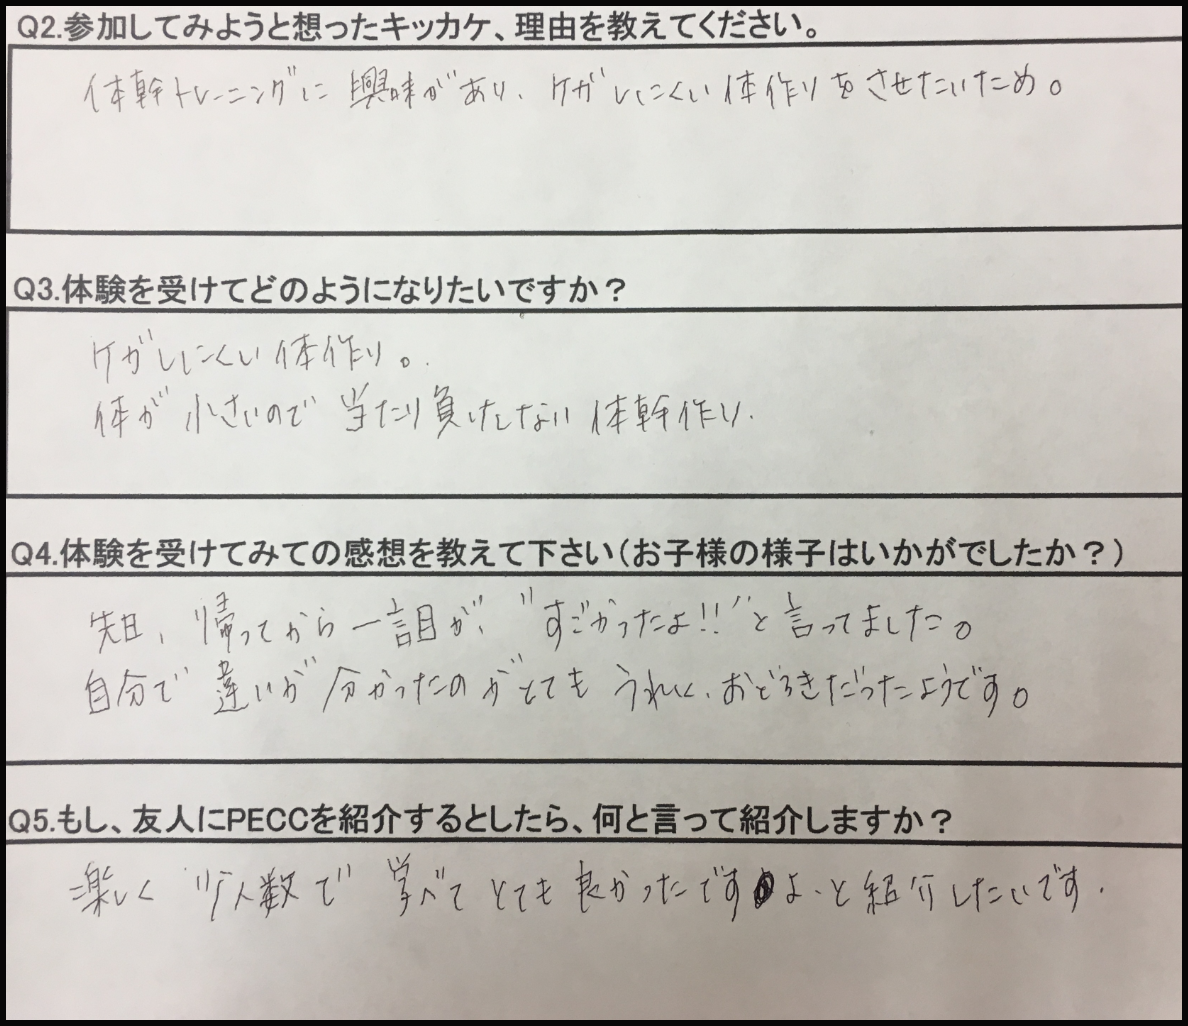 Q2.参加してみようと想ったキッカケ、理由を教えてください。
体幹トレーニングに興味があり、ケガしにくい体作りをさせたいため。
Q3.体験を受けてどのようになりたいですか？
ケガしにくい体作り。
体が小さいので当たり負けしない体幹作り.
Q4.体験を受けてみての感想を教えて下さい(お子様の様子はいかがでしたか？)
先日、帰ってから一言目が、"すごかったよ!!"と言ってました。
自分で違いが分かったのがとてもうれしく、おどろきだったようです。
Q5.もし、友人にPECCを紹介するとしたら、何と言って紹介しますか？
楽しく少人数で学べてとても良かったですよ.と紹介したいです.